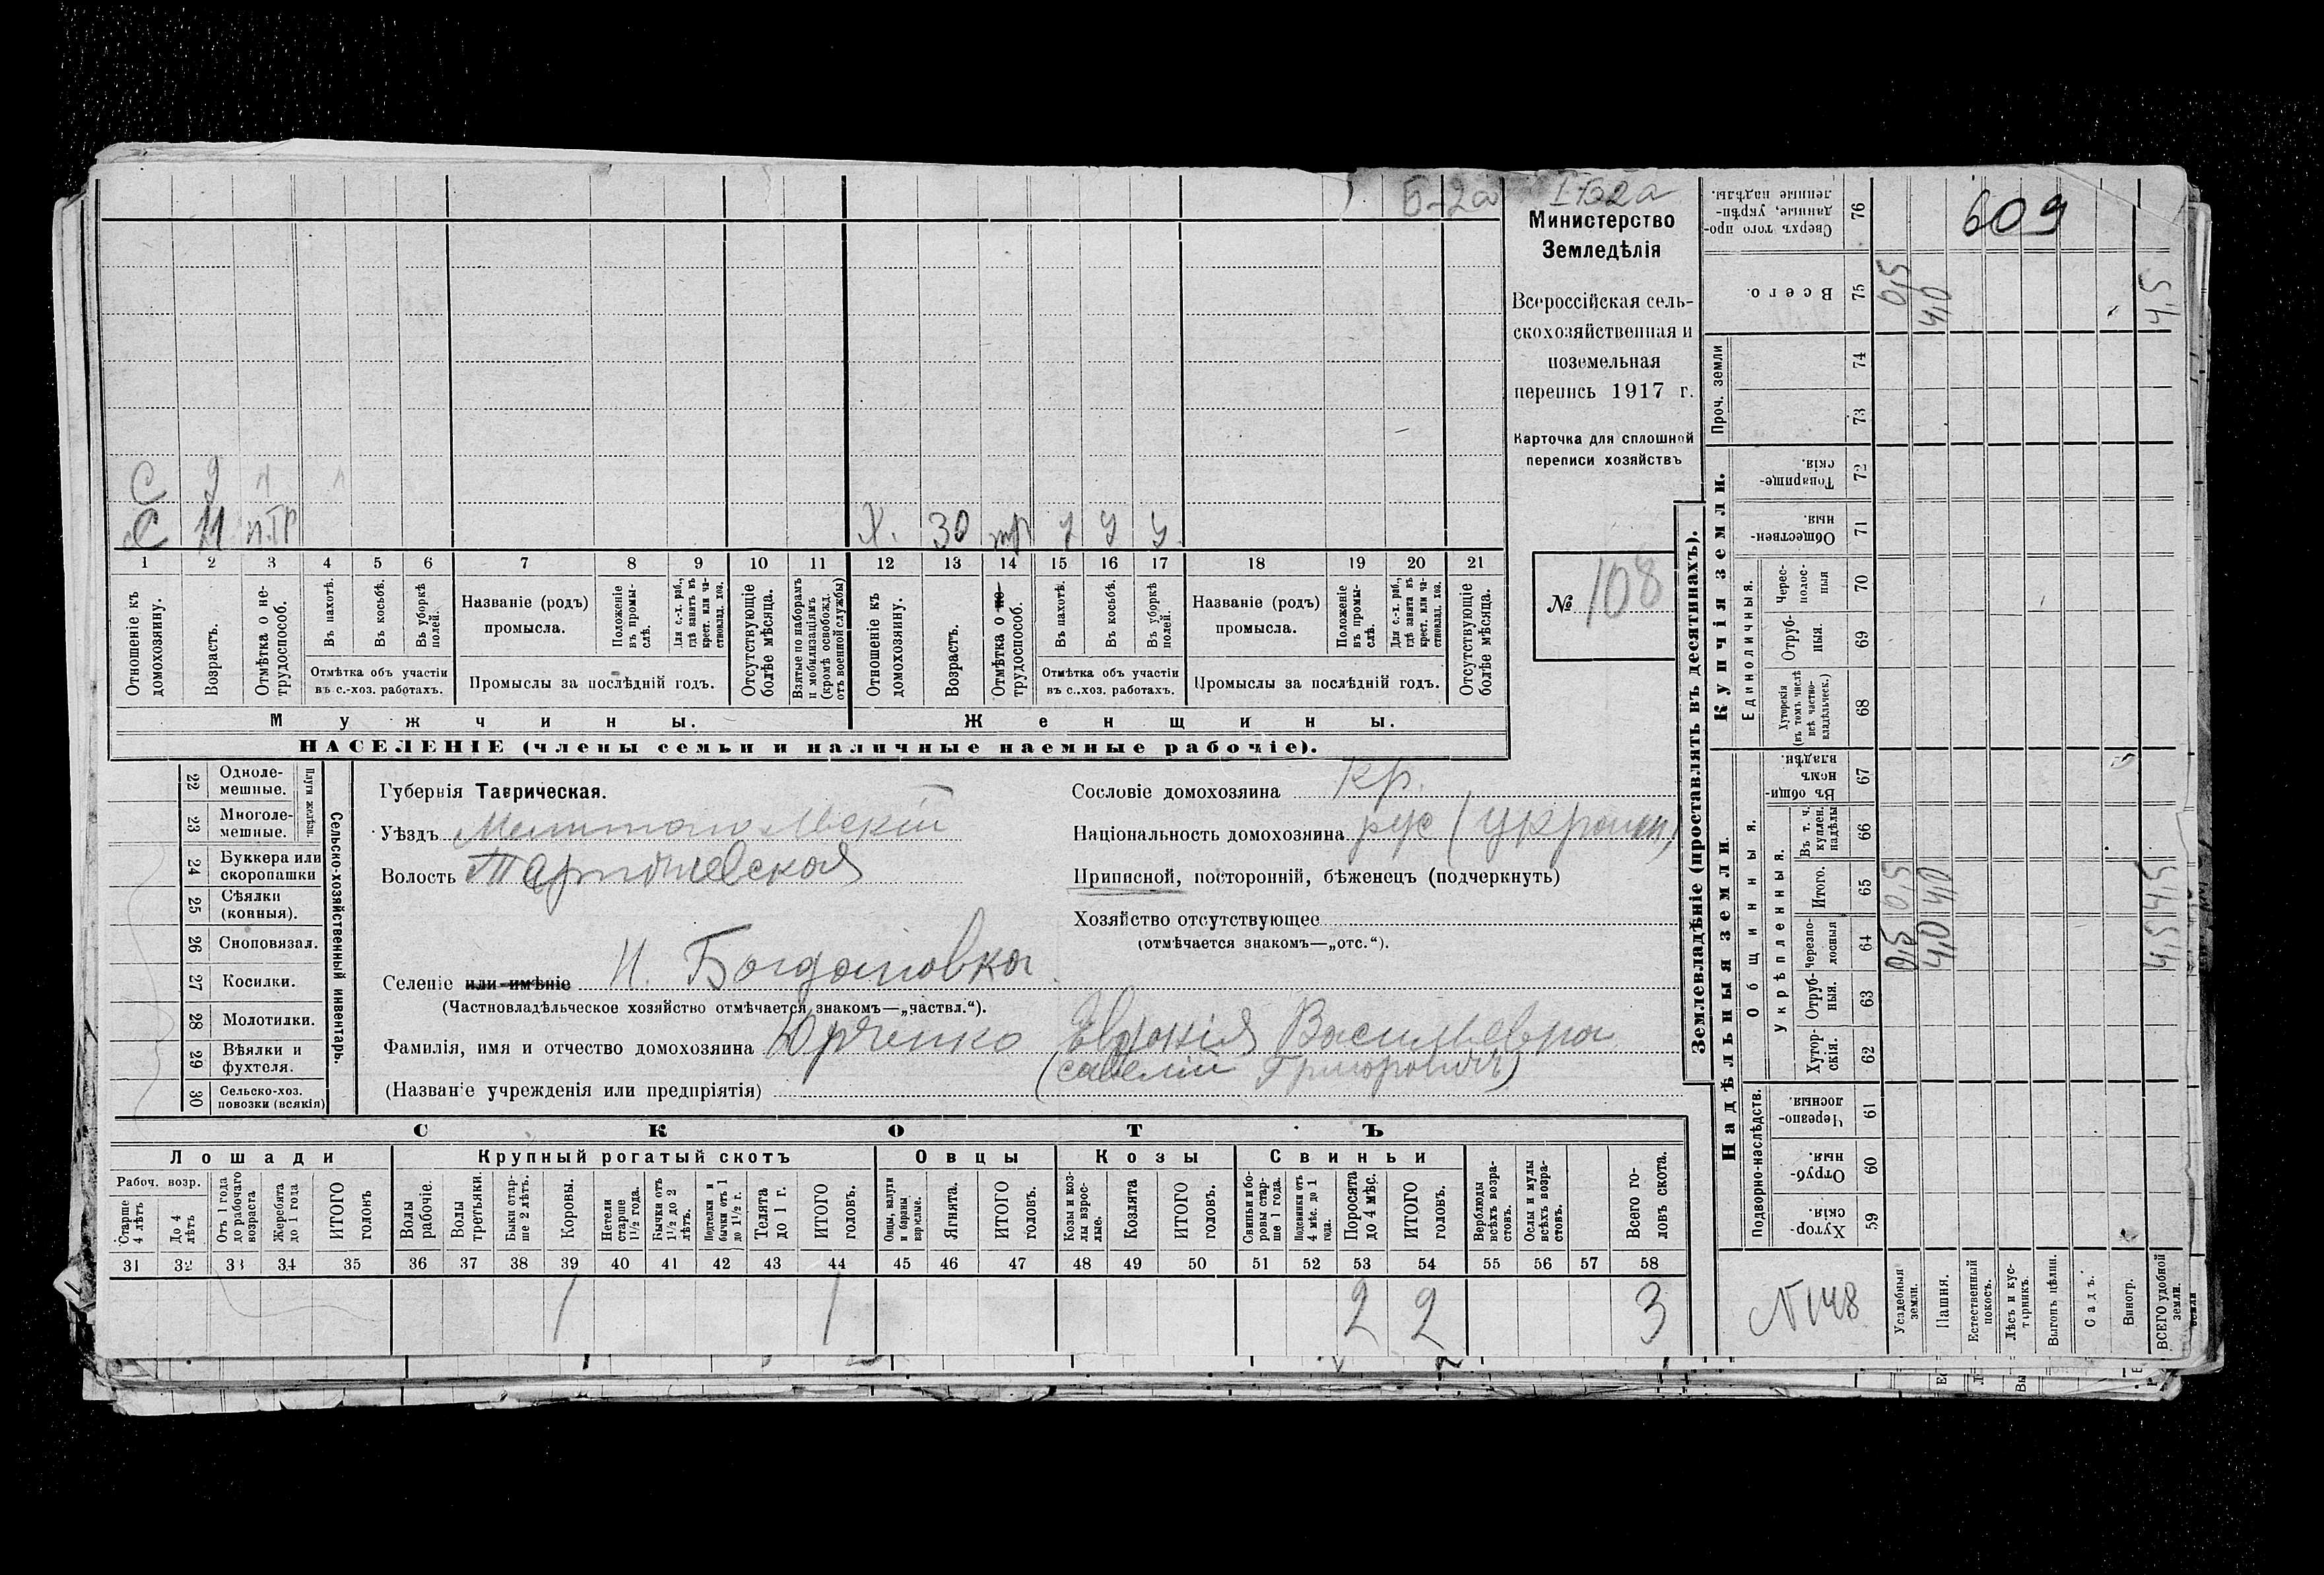 Б-2а
609
Министерство
Земледѣлія
Всероссійская сель-
скохозяйственная и
поземельная
перепись 1917 г.
Карточка для сплошной
переписи хозяйствъ
№ 108
С 9
С 11 н.тр
Х. 30 тр у у у
1 2 3 4 5 6 7 8 9 10 11 12 13 14 15 16 17 18 19 20 21
Отношеніе къ домохозяину.
Возрастъ.
Отмѣтка о не-трудоспособ.
Въ пахотѣ.
Въ косьбѣ.
Въ уборкѣ полей.
Отмѣтка объ участіи
въ с.-хоз. работахъ.
Названіе (родъ)
промысла.
Положеніе въ промы-слѣ.
Для с.-х. раб., гдѣ занятъ въ крест. или ча-стновлад. хоз.
Промыслы за послѣдній годъ.
Отсутствующіе болѣе мѣсяца.
Взятые по наборамъ и мобилизаціямъ (кромѣ освобожд. отъ военной службы)
Отношеніе къ домохозяину.
Возрастъ.
Отмѣтка о не-трудоспособ.
Въ пахотѣ.
Въ косьбѣ.
Въ уборкѣ полей.
Отмѣтка объ участіи
въ с.-хоз. работахъ.
Названіе (родъ)
промысла.
Положеніе въ промы-слѣ.
Для с.-х. раб., гдѣ занята въ крест. или ча-стновлад. хоз.
Промыслы за послѣдній годъ.
Отсутствующіе болѣе мѣсяца.
Мужчины.
Женщины.
НАСЕЛЕНІЕ (члены семьи и наличные наемные рабочіе).
22 Одноле-мешные.
23 Многоле-мешные.
Плуги желѣзн.
24 Буккера или скоропашки
25 Сѣялки (конныя).
26 Сноповязал.
27 Косилки.
28 Молотилки.
29 Вѣялки и фухтеля.
30 Сельско-хоз. повозки (всякія)
Сельско-хозяйственный инвентарь.
Губернія Таврическая.
Уѣздъ Мелитопольскій
Волость
Селеніе или имѣніе Н. Богдановка
(Частновладѣльческое хозяйство отмѣчается знакомъ—„частвл.“).
Фамилія, имя и отчество домохозяина Юрченко Евдокія Васильевна
(Савелій Григоровичъ)
(Названіе учрежденія или предпріятія)
Сословіе домохозяина Кр.
Національность домохозяина рус (украин)
Приписной, посторонній, бѣженецъ (подчеркнуть)
Хозяйство отсутствующее
(отмѣчается знакомъ—„отс.“).
СКОТЪ
Лошади
Крупный рогатый скотъ
Овцы
Козы
Свиньи
Рабоч. возр.
Старше 4 лѣтъ
До 4 лѣтъ
Отъ 1 года до рабочаго возраста
Жеребята до 1 года
ИТОГО головъ
Волы рабочіе.
Волы третьяки.
Быки стар-ше 2 лѣтъ.
Коровы.
Нетели старше 1½ года.
Бычки отъ 1½ до 2 лѣтъ.
Подтелки и бычки отъ 1 до 1½ г.
Телята до 1 г.
ИТОГО головъ.
Овцы, валухи и бараны взрослые.
Ягнята.
ИТОГО головъ.
Козы и коз-лы взрос-лые.
Козлята
ИТОГО головъ.
Свиньи и бо-ровы стар-ше 1 года.
Подсвинки отъ 4 мѣс. до 1 года.
Поросята до 4 мѣс.
ИТОГО головъ.
Верблюды всѣхъ возра-стовъ.
Ослы и мулы всѣхъ возра-стовъ.
Всего го-ловъ скота.
31 32 33 34 35 36 37 38 39 40 41 42 43 44 45 46 47 48 49 50 51 52 53 54 55 56 57 58
1 1 2 2 3
Землевладѣніе (проставлять въ десятинахъ).
Купчія земли.
Надѣльныя земли.
Сверхъ того про-данные, укрѣп-ленные надѣлы. 76
Всего. 75 0,5 4,0 4,5
Проч. земли
74
73
Товарище-скія. 72
Обществен-ныя. 71
Единоличныя.
Черес-полос-ныя 70
Отруб-ныя. 69
Хуторскія (въ томъ числѣ всѣ частно-владѣльческ.) 68
Общинныя.
Въ общин-номъ владѣн. 67
Укрѣпленныя.
Въ т. ч. куплен. надѣлы 66
Итого. 65 0,5 4,0 4,5
Черезпо-лосныя 64 0,5 4,0 4,5
Отруб-ныя. 63
Хутор-скія. 62
Подворно-наслѣдств.
Черезпо-лосныя. 61
Отруб-ныя. 60
Хутор-скія. 59
N 148
Усадебныя земли.
Пашня.
Естественный покосъ.
Лѣсъ и кус-тарникъ.
Выгонъ цѣлин.
Садъ.
Виногр.
ВСЕГО удобной земли.